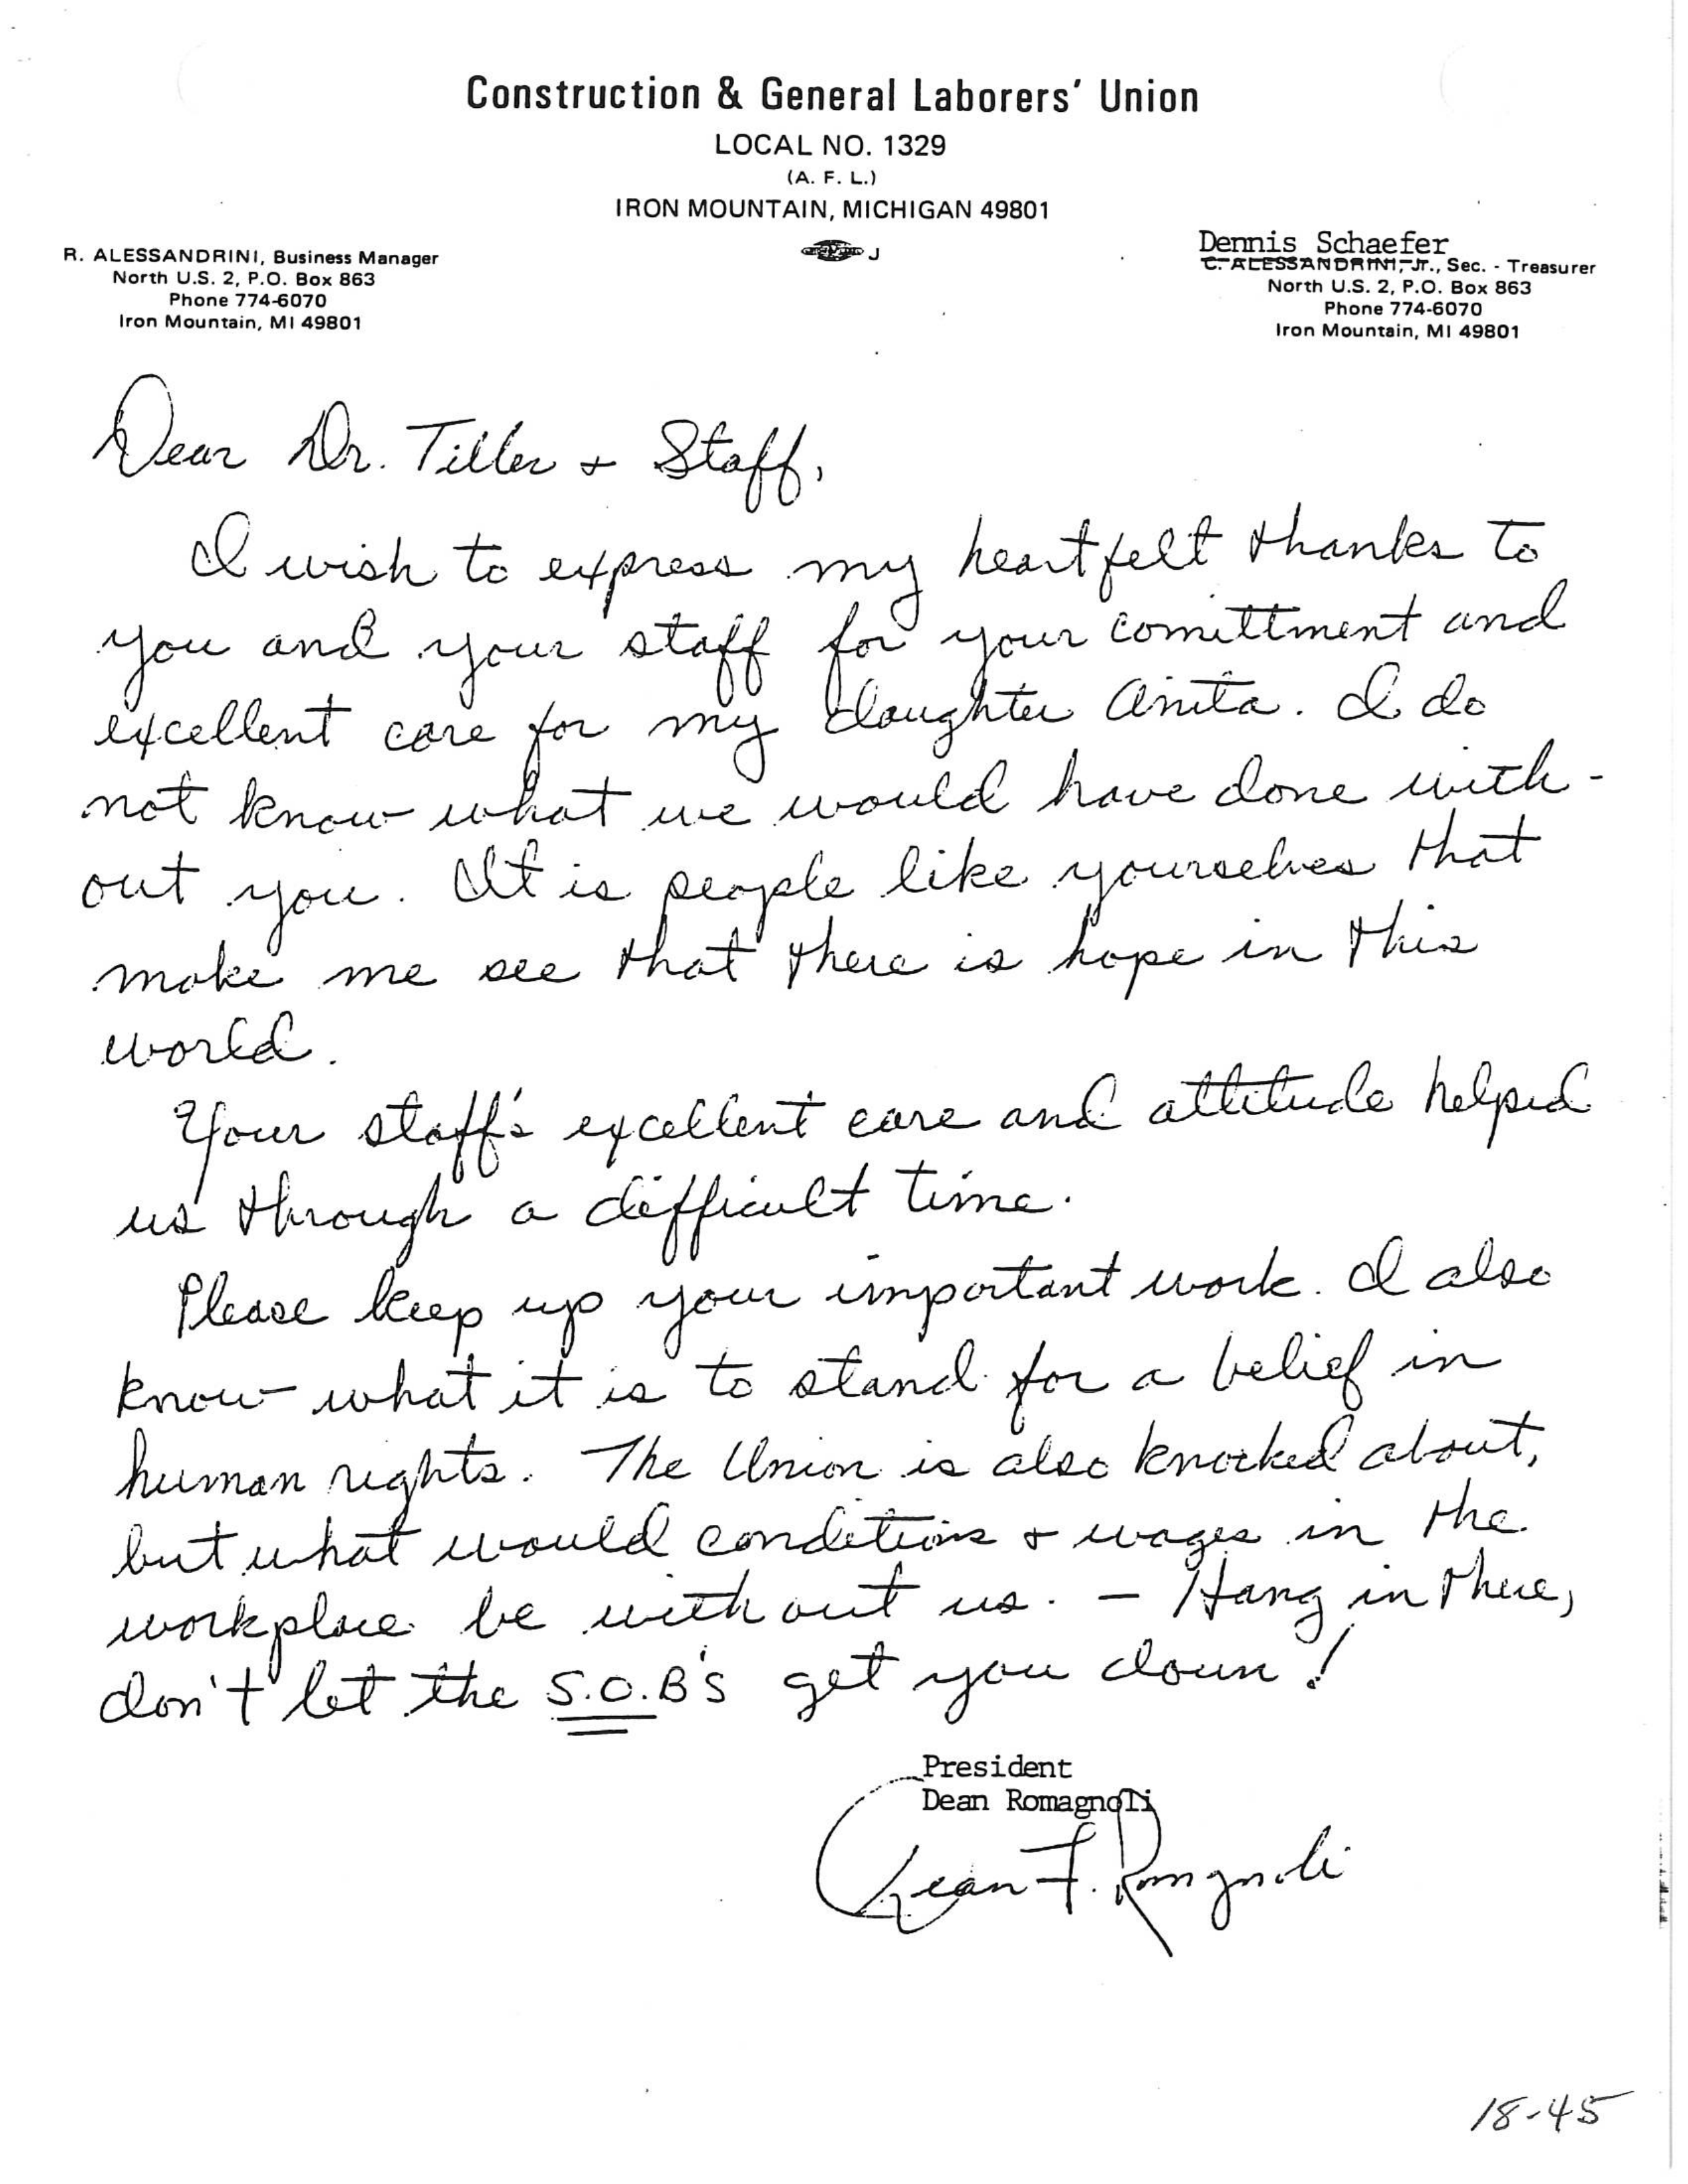 Construction & General Laborers' Union
LOCAL NO. 1329
(A. F. L.)
IRON MOUNTAIN, MICHIGAN 49801
R. ALESSANDRINI, Business Manager
North U.S. 2, P.O. Box 863
Phone 774-6070
Iron Mountain, MI 49801
Dennis Schaefer
C. ALESSANDRINI, Jr., Sec. - Treasurer
North U.S. 2, P.O. Box 863
Phone 774-6070
Iron Mountain, MI 49801
Dear Dr. Tiller + Staff,
I wish to express my heartfelt thanks to
you and your staff for your comittment and
excellent care for my daughter Anita. I do
not know what we would have done with-
out you. It is people like yourselves that
make me see that there is hope in this
world.
Your staff's excellent care and attitude helped
us through a difficult time.
Please keep up your important work. I also
know what it is to stand for a belief in
human rights. The Union is also knocked about,
but what would conditions + wages in the
workplace be without us. - Hang in there,
don't let the S.O.B's get you down!
President
Dean Romagnoli
Dean F. Romagnoli
18-45